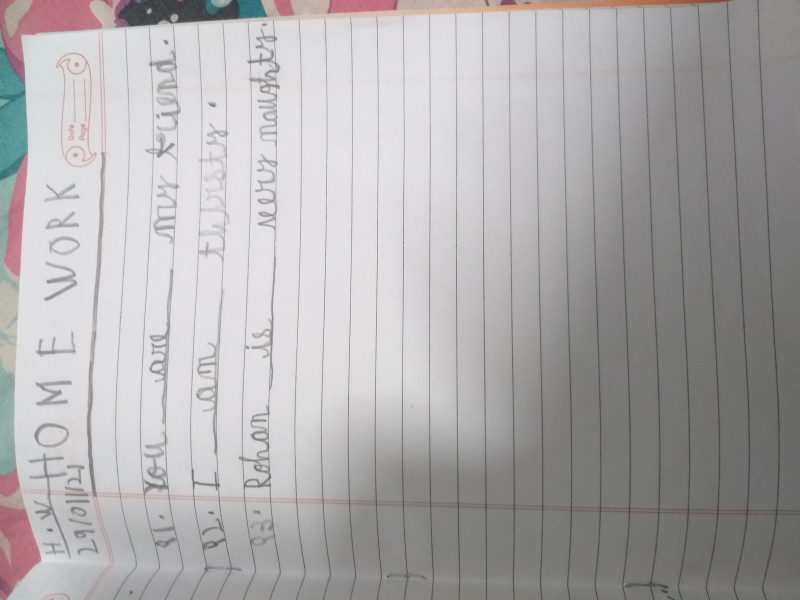 H.W HOME WORK
29/01/21
Date
Page
Q1. You are my friend.
Q2. I am thirsty.
Q3. Rohan is very naughty.